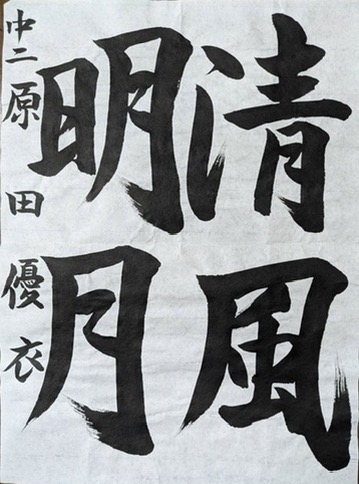 清風
明月
中二 原田優衣